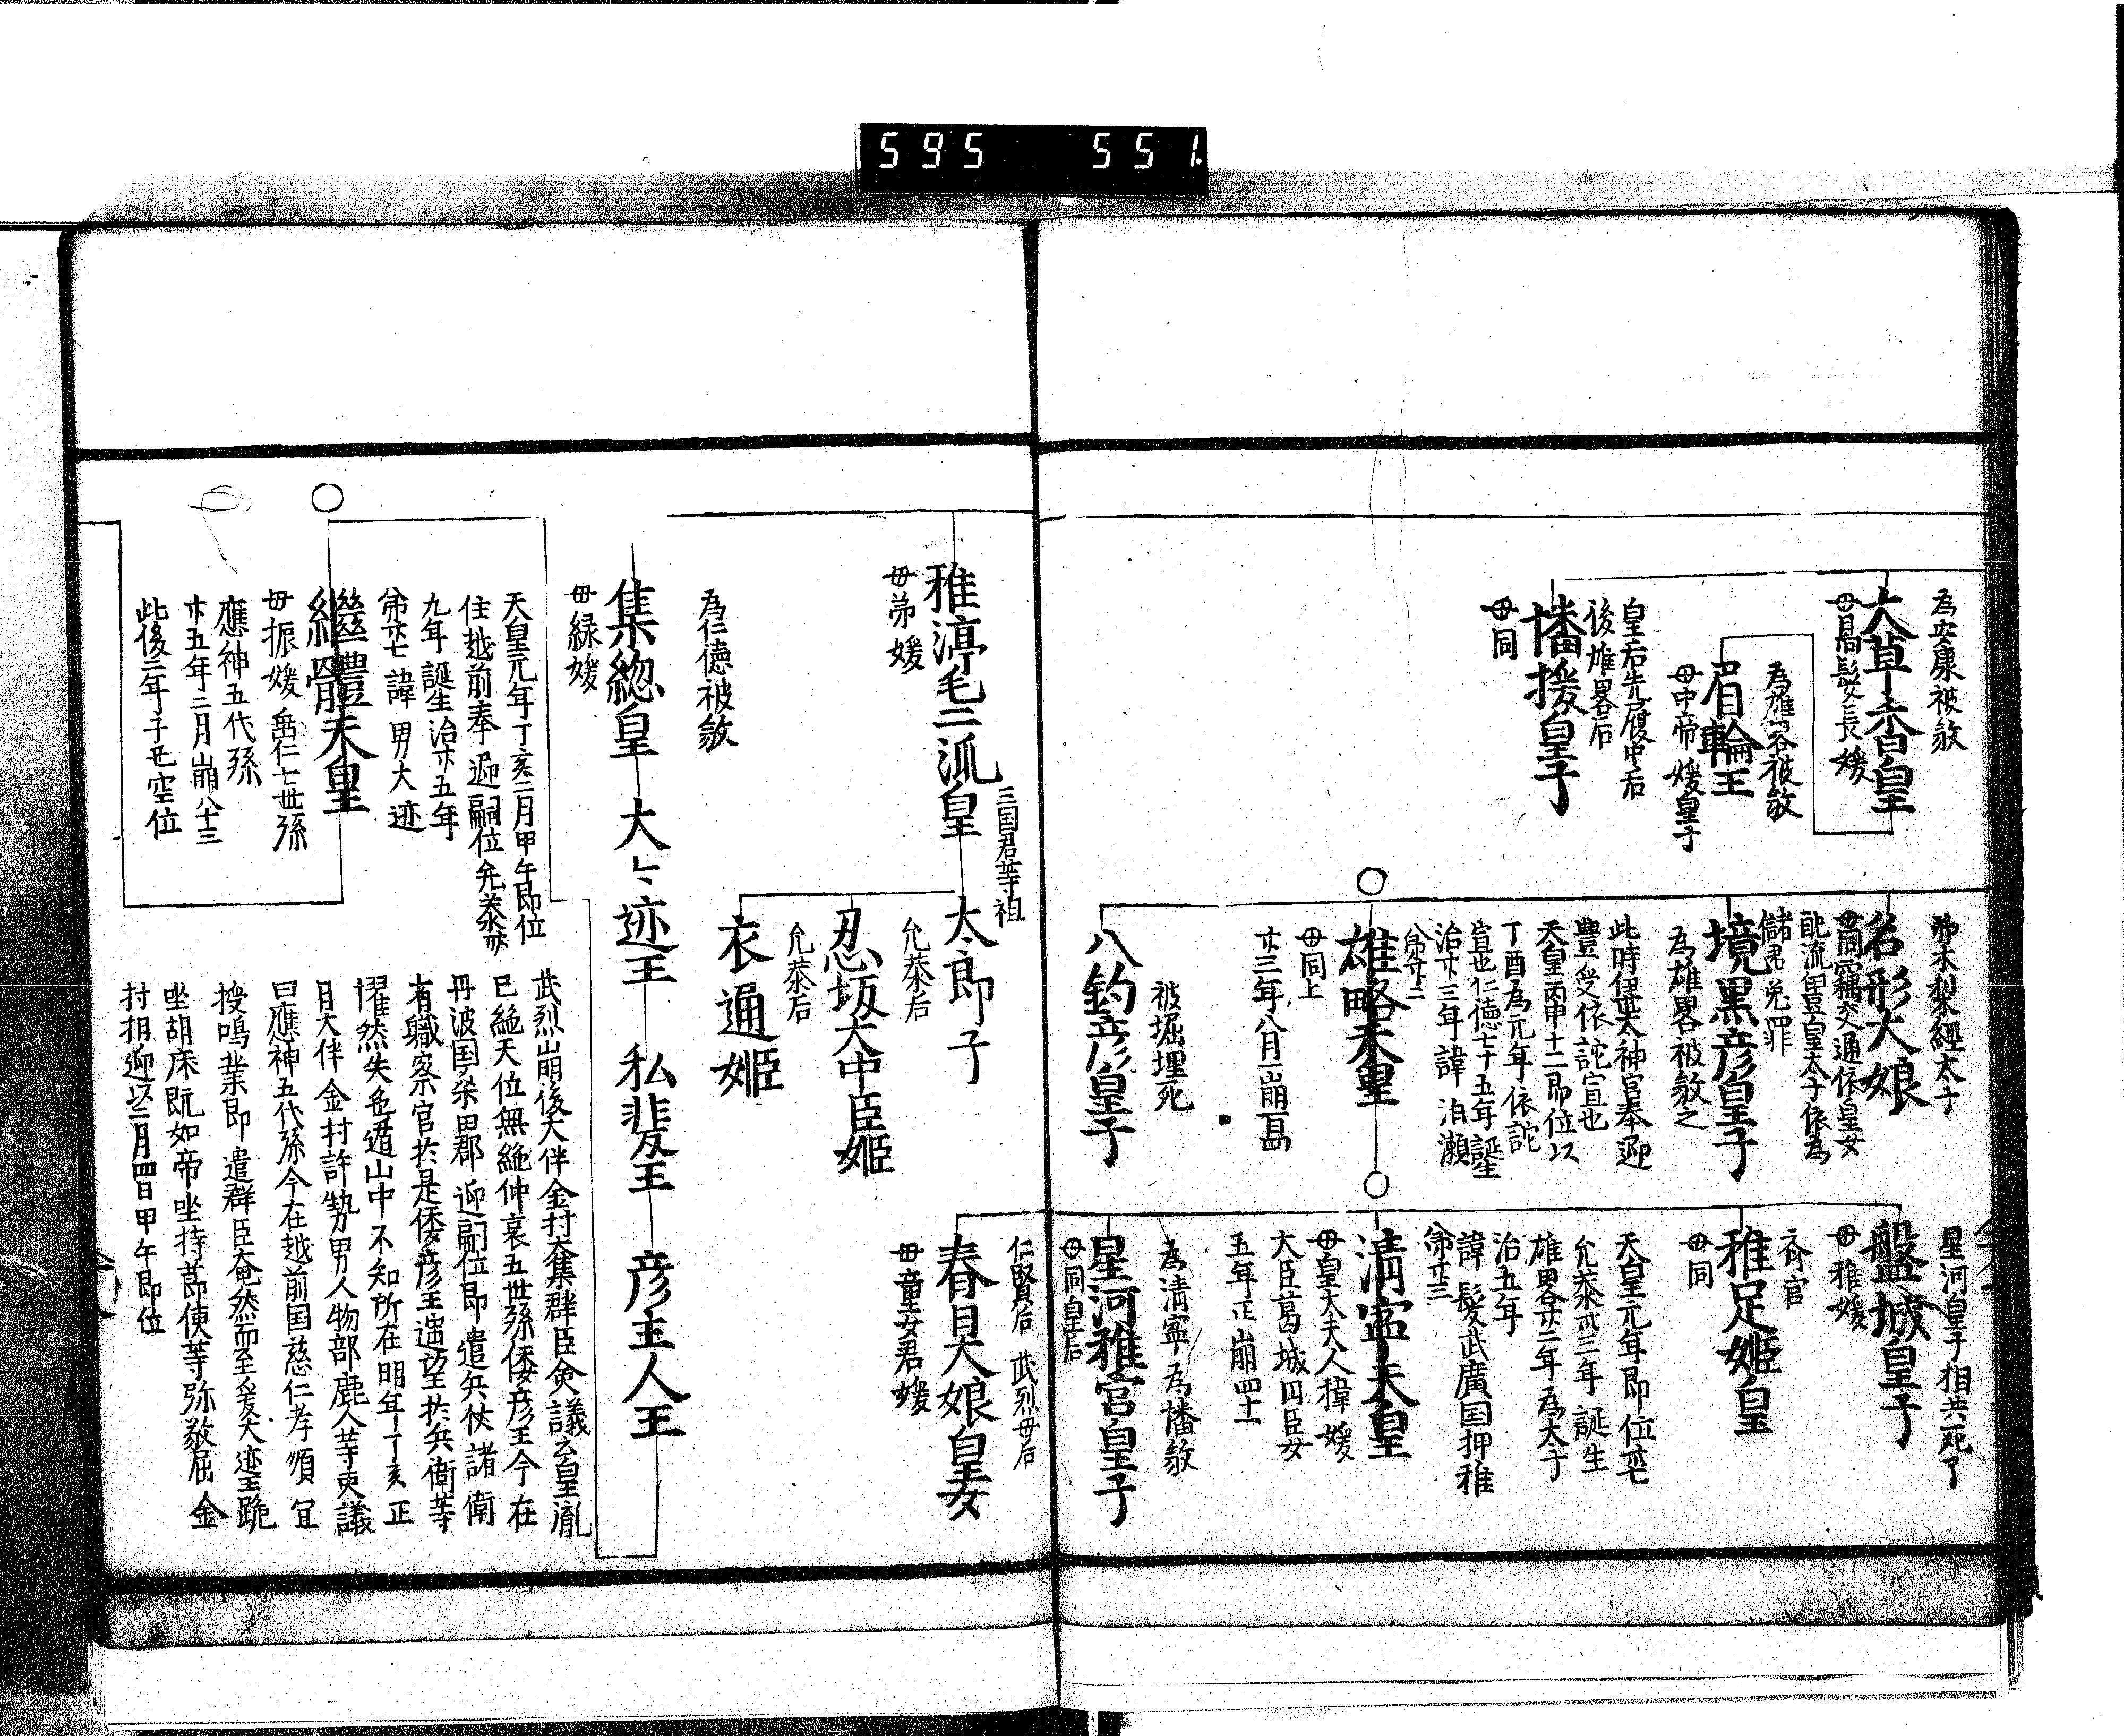 595 551
為安康被敘
大草香皇
母髮長媛
為雄畧被敘
眉輪王
母中帝媛皇子
皇后先履中后
後雄畧后
幡援皇子
母同
弟木梨經太子
名形大娘
母同竊交通依皇女
配流豊皇太子依為
儲君免罪
境黒彦皇子
為雄畧被敘之
此時伊世太神宮奉迎
豊受依詫宣也
天皇丙申十二即位以
丁酉為元年依詫
宣也仁德七十五年誕生
治廿三年諱泊瀬
弟廿二
雄略天皇
母同上
廿三年八月崩
被堀埋死
八釣彦皇子
星河皇子相共死了
盤城皇子
母稚媛
斎宮
稚足姫皇
母同
天皇元年即位
允恭卅三年誕生
雄畧廿二年為太子
治五年
諱髮武廣国押稚
弟廿三
清寧天皇
母皇太夫人韓媛
大臣葛城円臣女
五年正崩四十一
為清寧為幡敘
星河稚宮皇子
母同皇后
稚渟毛二派皇
三国君等祖
母弟媛
太郎子
允恭后
忍坂大中臣姫
允恭后
衣通姫
仁賢后 武烈母后
春日大娘皇女
母童女君媛
為仁德被敘
集総皇
母緑媛
大々迹王
私斐王
彦主人王
天皇元年丁亥二月甲午即位
住越前奉迎嗣位允恭卅
九年誕生治廿五年
弟廿七諱男大迹
繼體天皇
母振媛垂仁七世孫
應神五代孫
廿五年二月崩八十三
此後二年子丑空位
武烈崩後大伴金村大集群臣僉議云皇胤
已絶天位無絶仲哀五世孫倭彦王今在
丹波国桑田郡迎嗣位即遣兵仗諸衛
有職寮官於是倭彦王遥望於兵衛等
懼然失色遁山中不知所在明年丁亥正
月大伴金村許勢男人物部麁人等更議
曰應神五代孫今在越前国慈仁孝順宜
授鳴業即遣群臣奄然而至爰大迹王跪
坐胡床既如帝坐持節使等弥敬屈金
村相迎以二月四日甲午即位